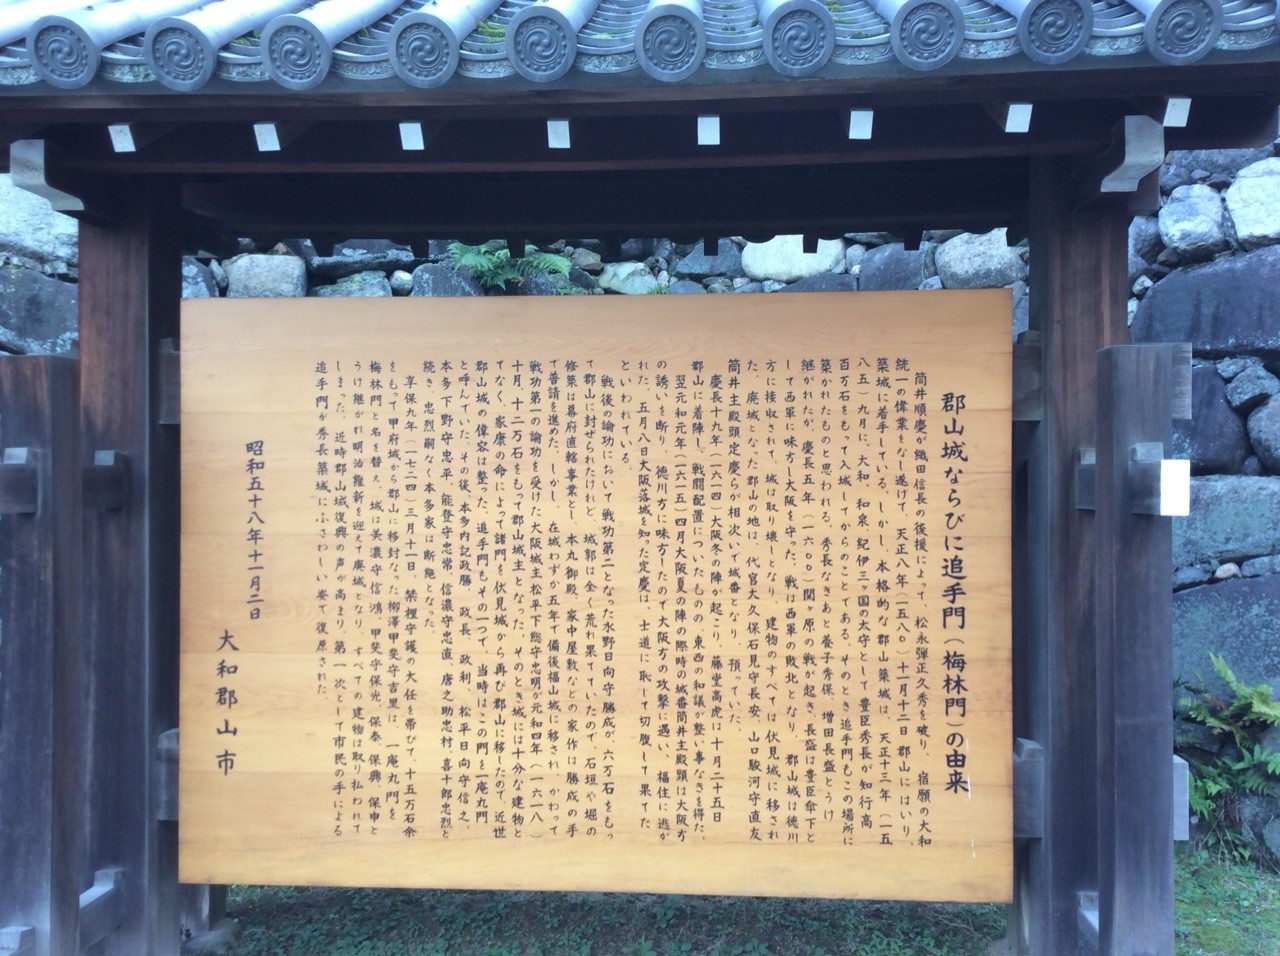 郡山城ならびに追手門(梅林門)の由来
筒井順慶が織田信長の後援によって、松永弾正久秀を破り、宿願の大和
統一の偉業をなし遂げて、天正八年(一五八〇)十一月十二日郡山にはいり、
築城に着手している。しかし、本格的な郡山築城は、天正十三年(一五
八五)九月に、大和 和泉 紀伊三ヶ国の太守として豊臣秀長が知行高
百万石をもって入城してからのことである。そのとき追手門もこの場所に
築かれたものと思われる。秀長なきあと養子秀保、増田長盛とうけ
継がれたが、慶長五年(一六〇〇)関ヶ原の戦が起き、長盛は豊臣傘下と
して西軍に味方し大阪を守った。戦は西軍の敗北となり、郡山城は徳川
方に接収されて、城は取り壊しとなり、建物のすべては伏見城に移され
た。廃城となった郡山の地は、代官大久保石見守長安、山口駿河守直友
筒井主殿頭定慶らが相次いで城番となり、預っていた。
慶長十九年(一六一四)大阪冬の陣が起こり、藤堂高虎は十月二十五日
郡山に着陣し、戦闘配置についたものの、東西の和議が整い事なきを得た。
翌元和元年(一六一五)四月大阪夏の陣の際時の城番筒井主殿頭は大阪方
の誘いを断り、徳川方に味方したので大阪方の攻撃に遇い、福住に逃が
れた。五月八日大阪落城を知った定慶は、士道に恥じて切腹して果てた
といわれている。
戦後の論功において戦功第二となった水野日向守勝成が、六万石をもっ
て郡山に封ぜられたけれど、城郭は全く荒れ果てていたので、石垣や堀の
修築は幕府直轄事業とし、本丸御殿、家中屋敷などの家作は勝成の手
で普請を進めた。しかし、在城わずか五年で備後福山城に移され、かわって
戦功第一の論功を受けた大阪城主松平下総守忠明が元和四年(一六一八)
十月、十二万石をもって郡山城主となった。そのとき城には十分な建物と
てなく、家康の命によって諸門を伏見城から再び郡山に移したので、近世
郡山城の偉容は整った。追手門もその一つで、当時はこの門を一庵丸門
と呼んでいた。その後、本多内記政勝、政長、政利、松平日向守信之、
本多下野守忠平、能登守忠常、信濃守忠直、唐之助忠村、喜十郎忠烈と
続き、忠烈嗣なく本多家は断絶となった。
享保九年(一七二四)三月十一日、禁裡守護の大任を帯びて、十五万石余
をもって甲府城から郡山に移封なった柳澤甲斐守吉里は、一庵丸門を
梅林門と名を替え、城は美濃守信鴻、甲斐守保光、保泰、保興、保申と
うけ継がれ明治維新を迎えて廃城となり、すべての建物は取り払われて
しまった。近時郡山城復興の声が高まり、第一次として市民の手による
追手門が秀長築城にふさわしい姿で復原された。
昭和五十八年十一月二日
大和郡山市